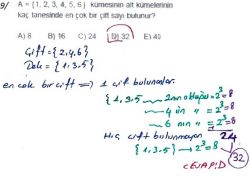 9/ A = {1, 2, 3, 4, 5, 6} kümesinin alt kümelerinin
kaç tanesinde en çok bir çift sayı bulunur?
A) 8 B) 16 C) 24 D) 32 E) 40
Çift = {2,4,6}
Tek = {1,3,5}
en çok bir çift => 1 çift bulunanlar.
{1,3,5 2nin 2³=8
4 2³=8
6 nın 2³=8
Hiç çift bulunmayan 24
{1,3,5} → 2³=8
32
CEVAP D